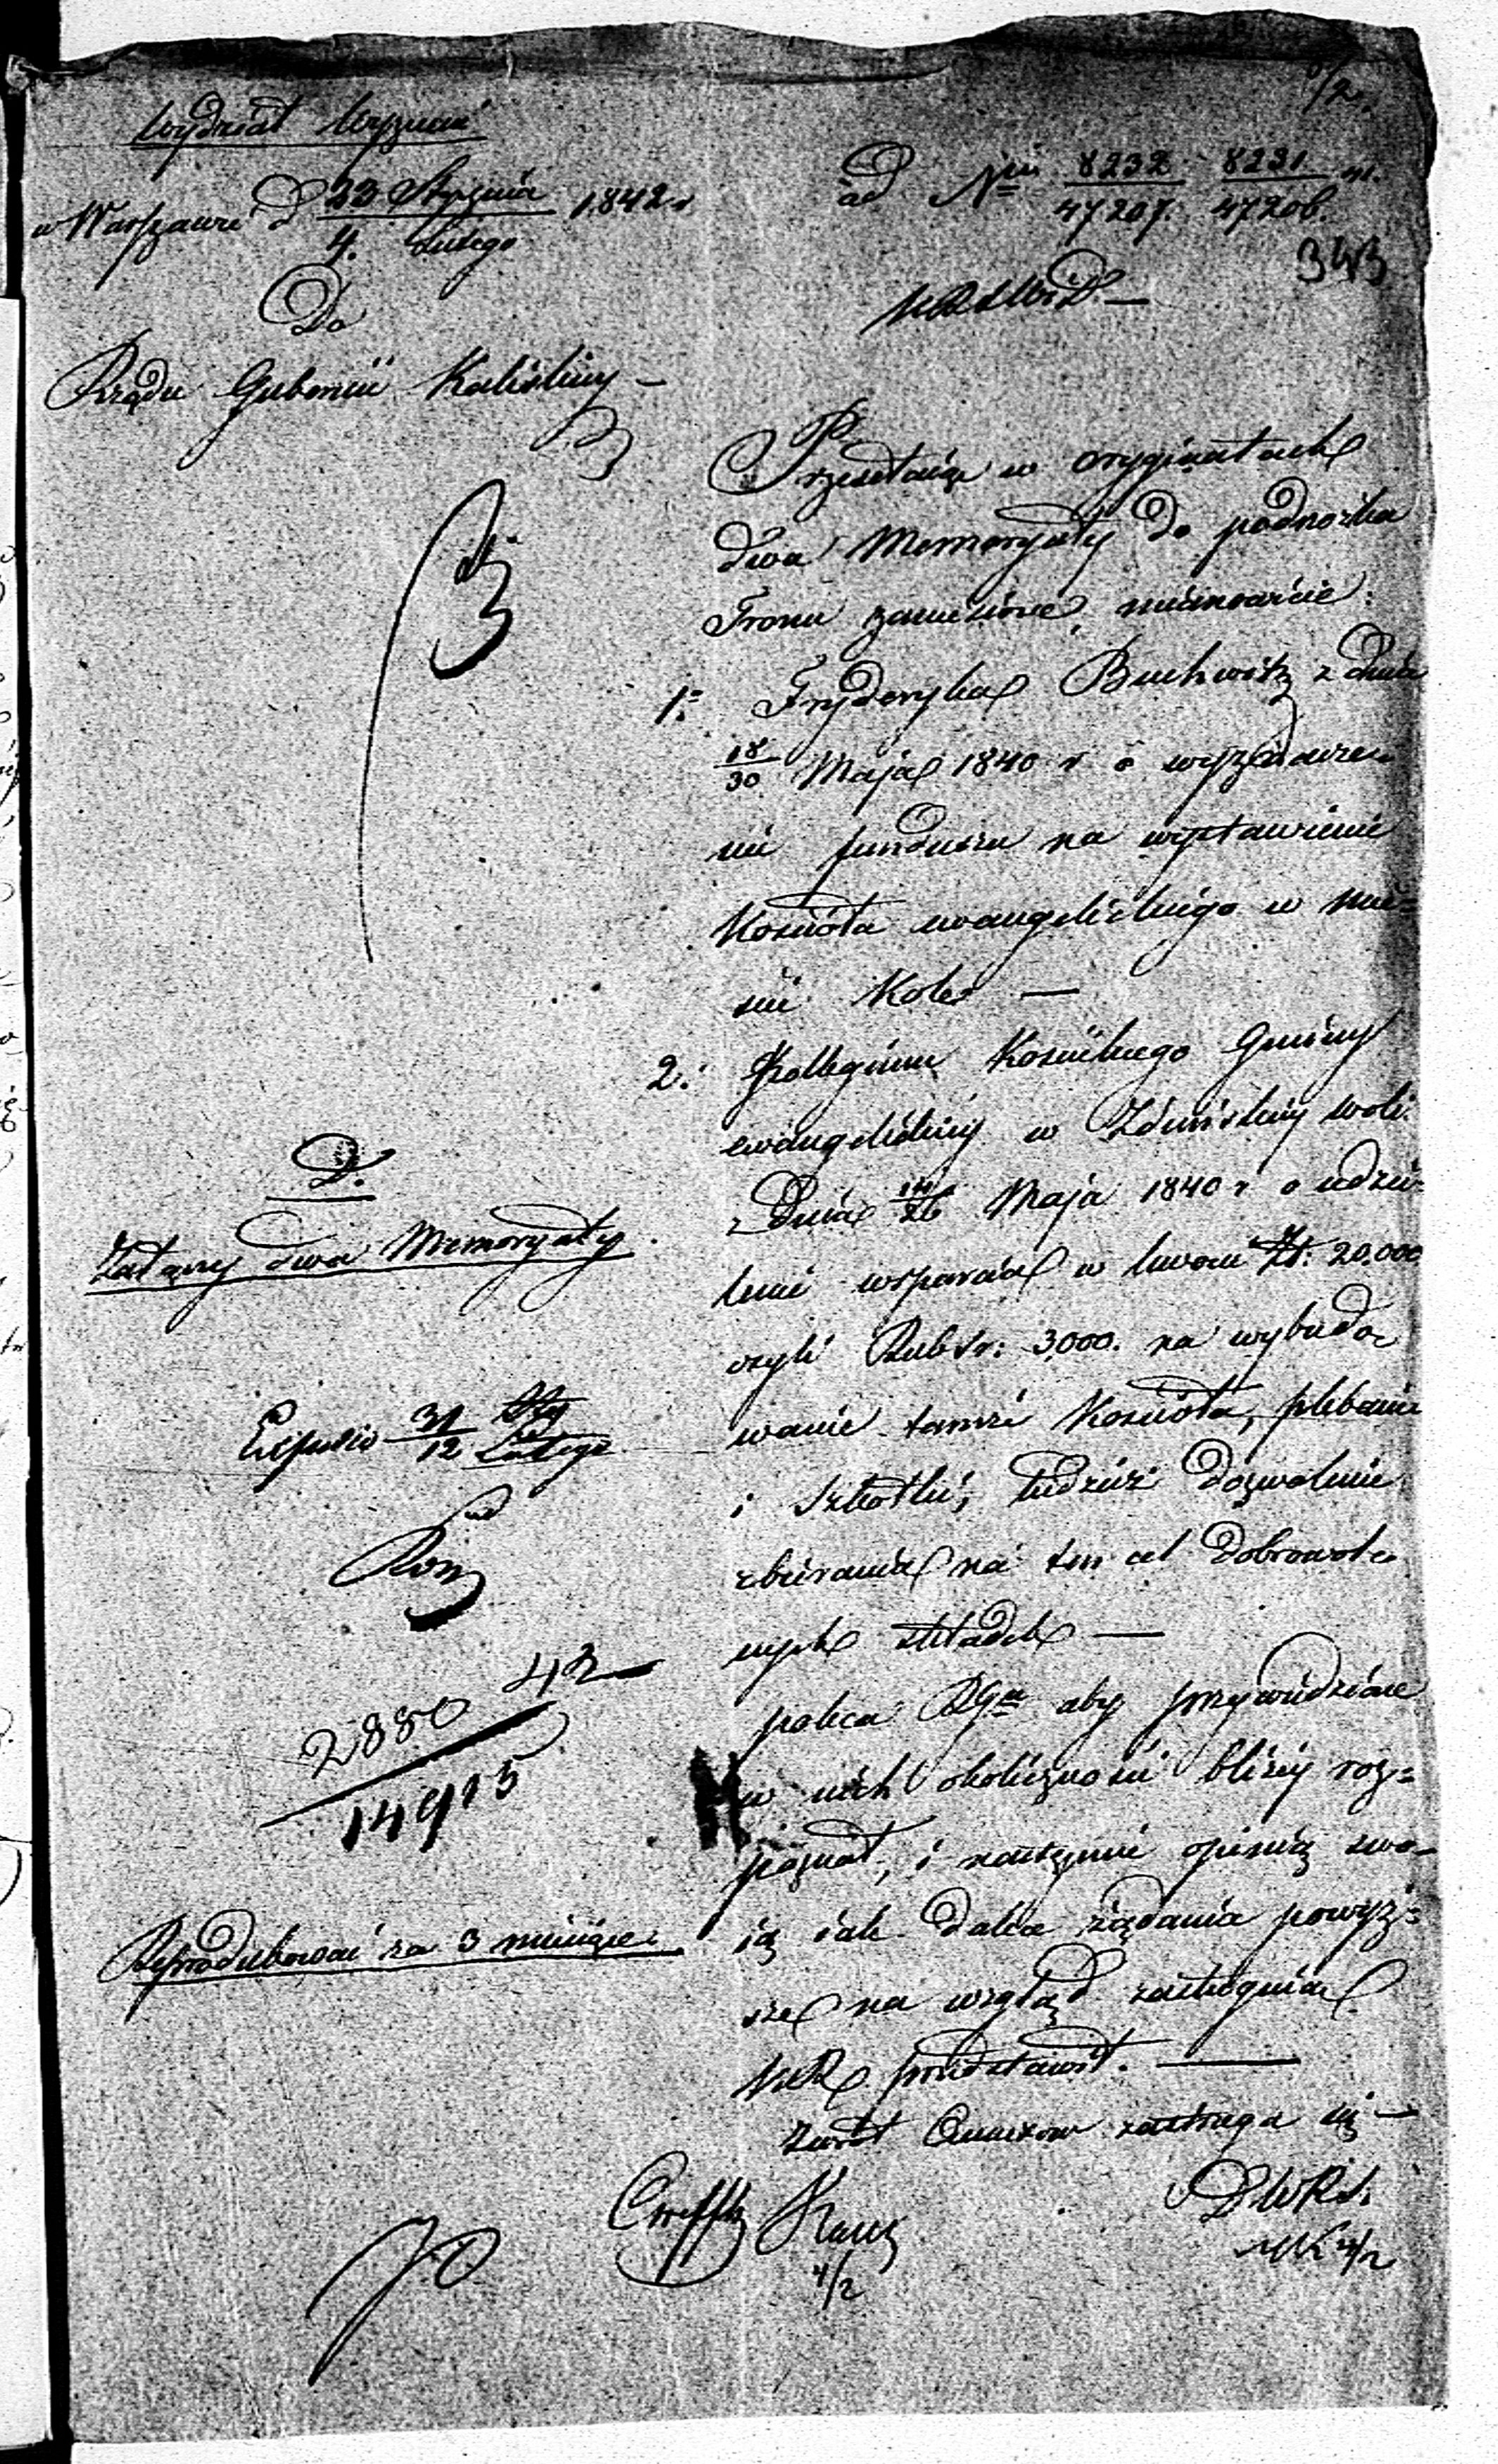 Wydział Wyznań
w Warszawie d 23 Stycznia 1842 r
4. Lutego
Do
Rządu Gubernii Kaliskiey –
ad Nru 8232 8231
47207. 47206.
343
KRSWiD. —
Przesełaiąc w oryginałach
dwa Memoryały do podnóżka
Tronu zaniesione, mianowicie:
1. Fryderyka Buchwitz z dnia
18/30 Maja 1840 r o wyjednanie
funduszu na wystawienie
Kościoła ewangelickiego w mie-
ście Kole —
2. Kollegium Kościelnego Gminy
ewangelickiey w Zduńskiey woli
z dnia 14/26 Maja 1840 r o udzie-
lenie wsparcia w kwocie Zł: 20.000
czyli Rub sr: 3,000. na wybudo-
wanie tamże Kościoła, plebanii
i Szkółki, tudzież dozwolenie
zbierania na ten cel dobrowol-
nych składek —
poleca RGu aby przywiedzione
w nich okoliczności bliżey roz-
poznał, i następnie opinią swo-
ią iak dalece żądania powyż-
sze na wzgląd zasługuią
KR przedstawił. —
Zwrot Annexow zastrzega się —
D.
Załączyć dwa Memoryały.
31 Sty
12 Lutego
2880 42
14915
Reprodukować za 3 miesiące.
DWRi
4/2
4/2